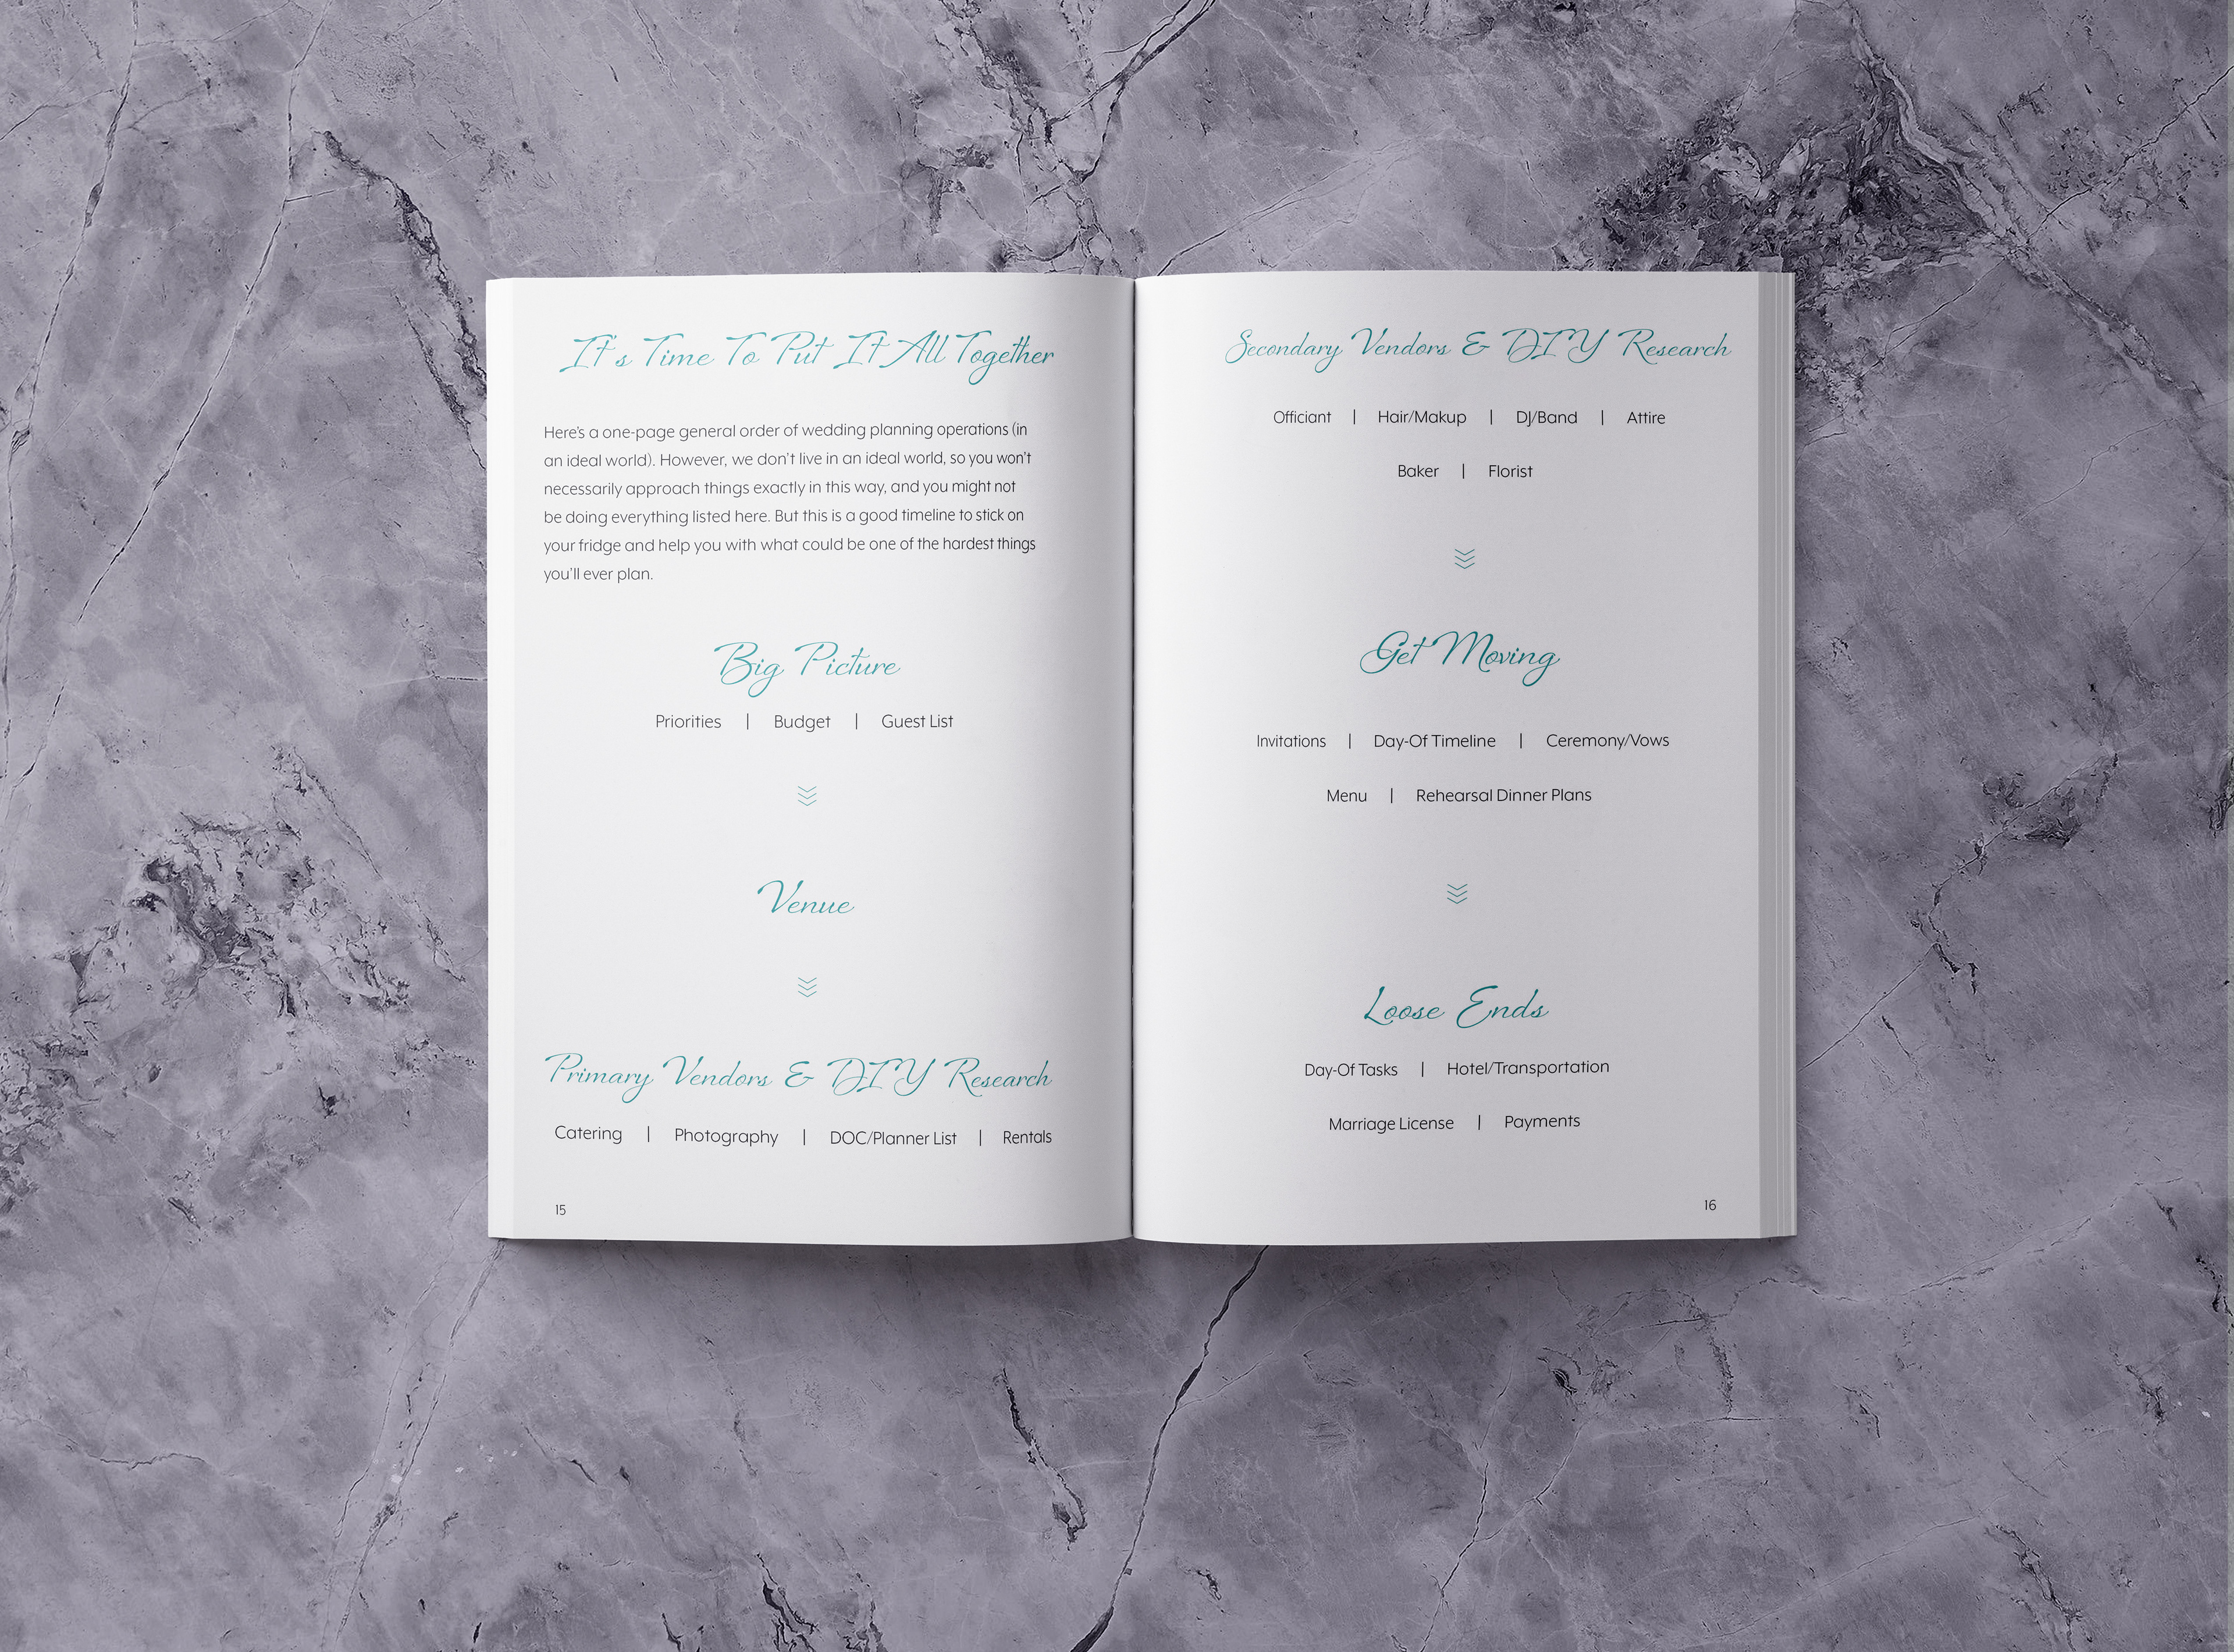 It's Time To Put It All Together
Here's a one-page general order of wedding planning operations (in
an ideal world). However, we don't live in an ideal world, so you won't
necessarily approach things exactly in this way, and you might not
be doing everything listed here. But this is a good timeline to stick on
your fridge and help you with what could be one of the hardest things
you'll ever plan.
Big Picture
Priorities | Budget | Guest List
Venue
Primary Vendors & DIY Research
Catering | Photography | DOC/Planner List | Rentals
15
Secondary Vendors & DIY Research
Officiant | Hair/Makup | DJ/Band | Attire
Baker | Florist
Get Moving
Invitations | Day-Of Timeline | Ceremony/Vows
Menu | Rehearsal Dinner Plans
Loose Ends
Day-Of Tasks | Hotel/Transportation
Marriage License | Payments
16